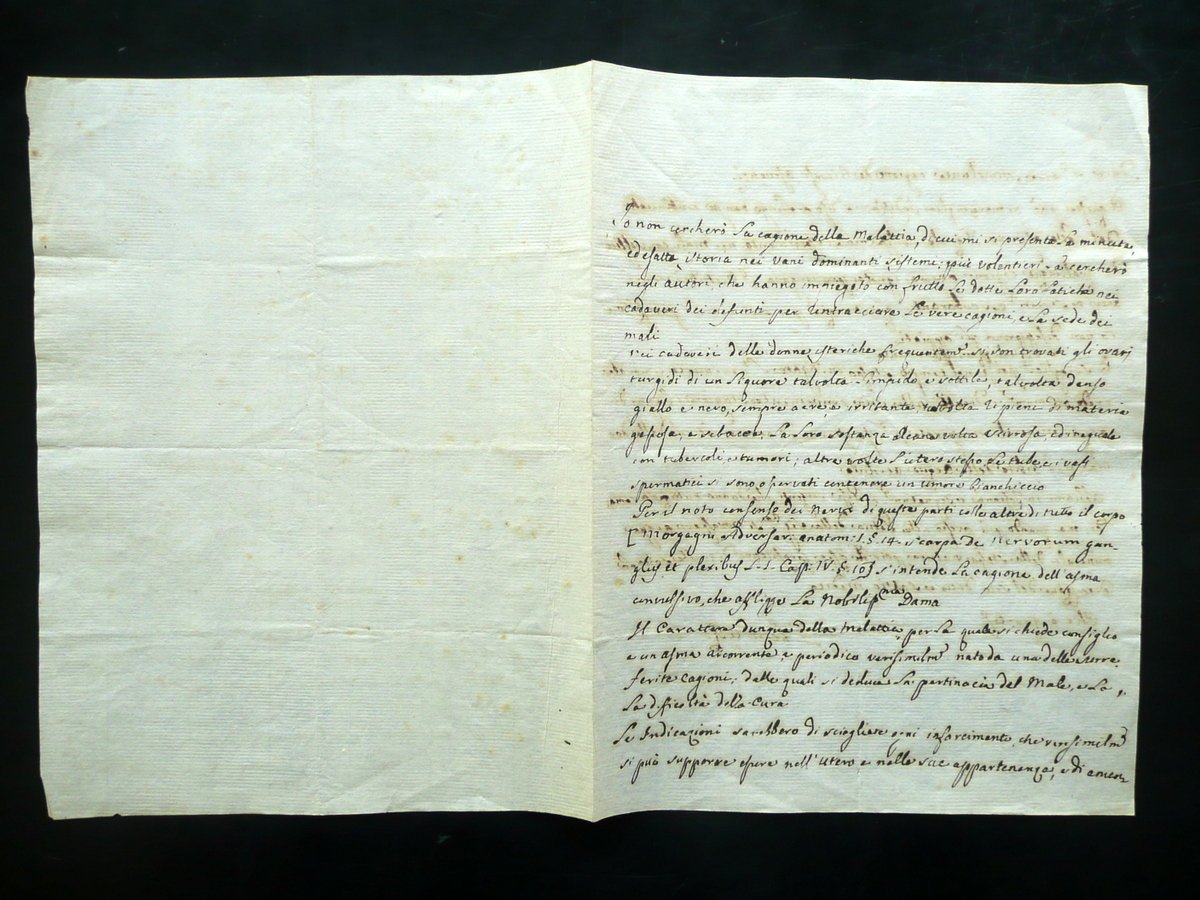 Io non cercherò la cagione della Malattia, di cui mi si presenta la minuta,
ed esatta storia nei vani dominanti sistemi; più volentieri la cercherò
negli autori, che hanno impiegato con frutto le dotte loro fatiche nei
cadaveri dei defunti per rintracciare le vere cagioni, e la sede dei
mali
Nei cadaveri delle donne isteriche frequentemᵉ si son trovati gli ovarj
turgidi di un liquore talvolta limpido e sottile, talvolta denso
giallo e nero, sempre acre, e irritante, talvolta ripieni di materia
gessosa, e sebacea, la loro sostanza alcuna volta scirrosa, ed ineguale
con tubercoli, e tumori; altre volte l'utero stesso, le tube, e i vasi
spermatici si sono osservati contenere un umore bianchiccio
Per il noto consenso dei nervi di queste parti colle altre di tutto il corpo
[Morgagni Adversar: anatom: 1. §. 14. Scarpa de Nervorum gan-
gliis et plexibus L. 1. Cap: IV. §. 10] s'intende la cagione dell'asma
convulsivo, che affligge la Nobilissᵐᵃ Dama
Il Carattere dunque della Malattia, per la quale si chiede consiglio
e un asma ricorrente, e periodico verisimilmᵉ nato da una delle surre-
ferite cagioni; dalle quali si deduce la pertinacia del Male, e la
la difficoltà della Cura
Le Indicazioni sarebbero di sciogliere ogni infarcimento, che verisimilmᵉ
si può supporre essere nell'utero e nelle sue appartenenze, e di